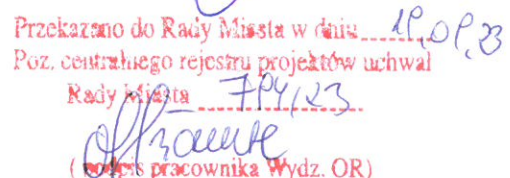 Przekazano do Rady Miasta w dniu
Poz. centralnego rejestru projektów uchwał
Rady Miasta 794/23
(podpis pracownika Wydz. OR)